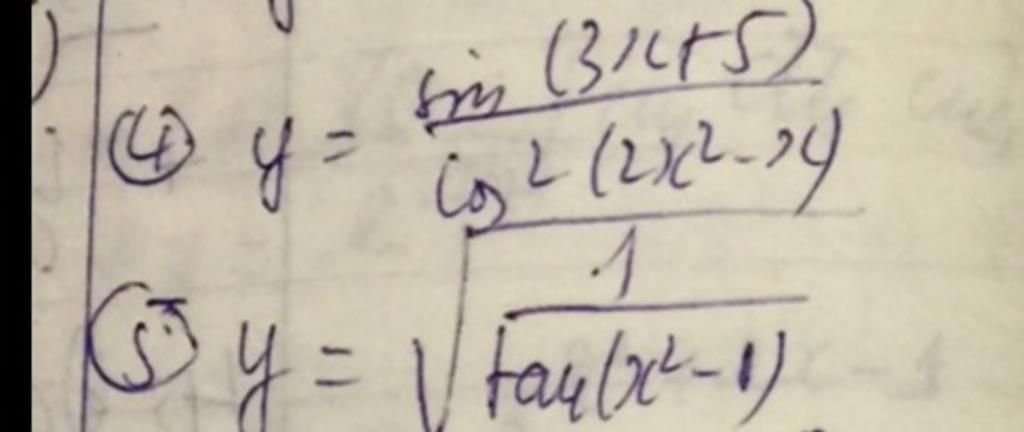 ④ y = sin (3x+5) / cos² (2x²-x)
⑤ y = √(1 / tan(x²-1))